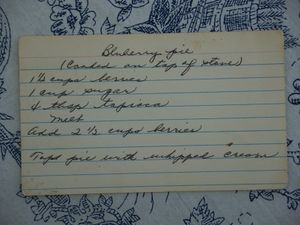 Blueberry pie
(Cooked on top of stove)
1½ cups berries
1 cup sugar
4 tbsp tapioca
Melt
Add 2 ½ cups berries
Top pie with whipped cream